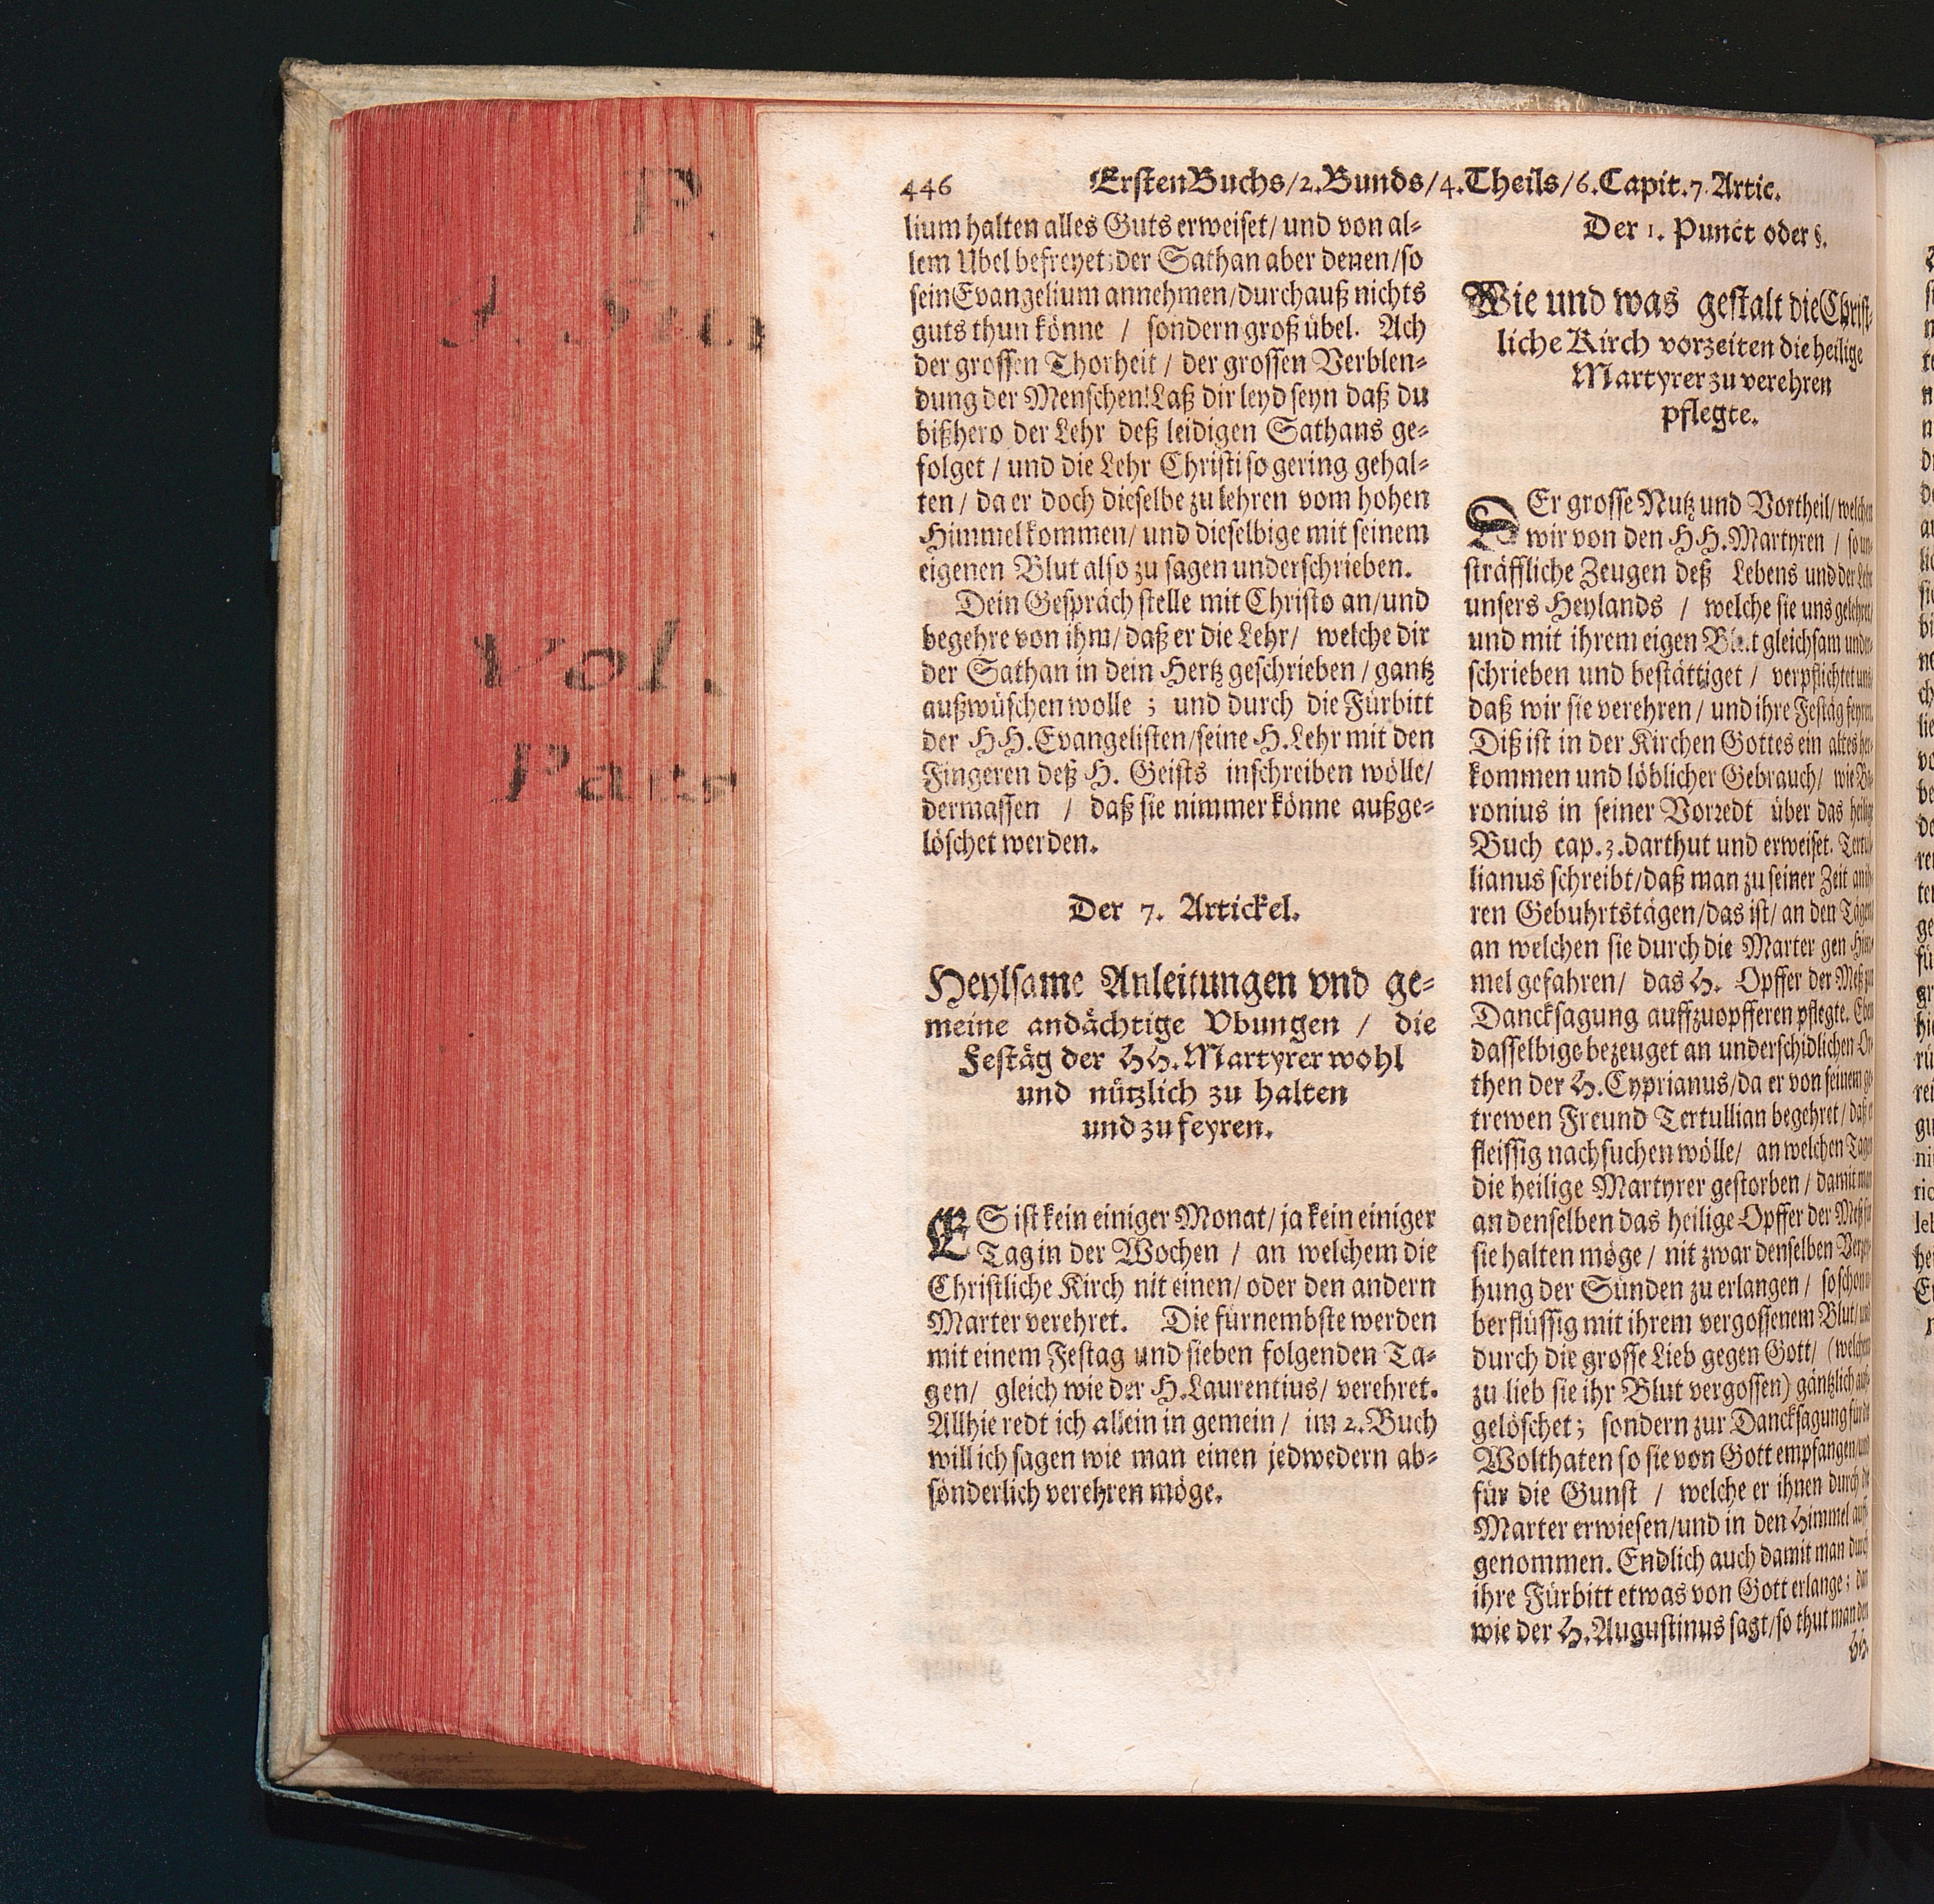 P.
Vol.
Pars
446 Ersten Buchs/2. Bunds/4. Theils/6. Capit. 7. Artic.
lium halten alles Guts erweiset/ und von al⸗
lem Ubel befreyet; der Sathan aber denen/so
sein Evangelium annehmen/durchauß nichts
guts thun könne / sondern groß übel. Ach
der grossen Thorheit / der grossen Verblen⸗
dung der Menschen! Laß dir leyd seyn daß du
bißhero der Lehr deß leidigen Sathans ge⸗
folget / und die Lehr Christi so gering gehal⸗
ten / da er doch dieselbe zu lehren vom hohen
Himmel kommen/ und dieselbige mit seinem
eigenen Blut also zu sagen underschrieben.
Dein Gespräch stelle mit Christo an/und
begehre von ihm/ daß er die Lehr/ welche dir
der Sathan in dein Hertz geschrieben / gantz
außwüschen wolle ; und durch die Fürbitt
der HH. Evangelisten/seine H. Lehr mit den
Fingeren deß H. Geists inschreiben wölle/
dermassen / daß sie nimmer könne außge⸗
löschet werden.
Der 7. Artickel.
Heylsame Anleitungen vnd ge⸗
meine andächtige Vbungen / die
Festäg der HH. Martyrer wohl
und nützlich zu halten
und zu feyren.
ES ist kein einiger Monat/ ja kein einiger
Tag in der Wochen / an welchem die
Christliche Kirch nit einen/ oder den andern
Marter verehret. Die fürnembste werden
mit einem Festag und sieben folgenden Ta⸗
gen/ gleich wie der H. Laurentius/ verehret.
Allhie redt ich allein in gemein / im 2. Buch
will ich sagen wie man einen jedwedern ab⸗
sönderlich verehren möge.
Der 1. Punct oder §.
Wie und was gestalt die Christ⸗
liche Kirch vorzeiten die heilige
Martyrer zu verehren
pflegte.
DEr grosse Nutz und Vortheil/ welchen
wir von den HH. Martyren / so un⸗
sträffliche Zeugen deß Lebens und der Lehr
unsers Heylands / welche sie uns gelehret/
und mit ihrem eigen Blut gleichsam under⸗
schrieben und bestättiget / verpflichtet uns
daß wir sie verehren / und ihre Festäg feyren.
Diß ist in der Kirchen Gottes ein altes her⸗
kommen und löblicher Gebrauch/ wie Ba⸗
ronius in seiner Vorredt über das heilig
Buch cap. 3. darthut und erweiset. Tertul⸗
lianus schreibt/daß man zu seiner Zeit an ih⸗
ren Gebuhrtstägen/das ist/ an den Tägen/
an welchen sie durch die Marter gen Him⸗
mel gefahren/ das H. Opffer der Meß zur
Dancksagung auffzuopfferen pflegte. Eben
dasselbige bezeuget an underschidlichen Or⸗
then der H. Cyprianus/da er von seinem ge⸗
trewen Freund Tertullian begehret / daß er
fleissig nachsuchen wölle/ an welchen Tagen
die heilige Martyrer gestorben / damit man
an denselben das heilige Opffer der Meß für
sie halten möge / nit zwar denselben Verzey⸗
hung der Sünden zu erlangen / so schon ü⸗
berflüssig mit ihrem vergossenem Blut/ und
durch die grosse Lieb gegen Gott/ (welchem
zu lieb sie ihr Blut vergossen) gäntzlich auß⸗
gelöschet; sondern zur Dancksagung für die
Wolthaten so sie von Gott empfangen/und
für die Gunst / welche er ihnen durch die
Marter erwiesen/und in den Himmel auff⸗
genommen. Endlich auch damit man durch
ihre Fürbitt etwas von Gott erlange; dan
wie der H. Augustinus sagt/so thut man den
HH.